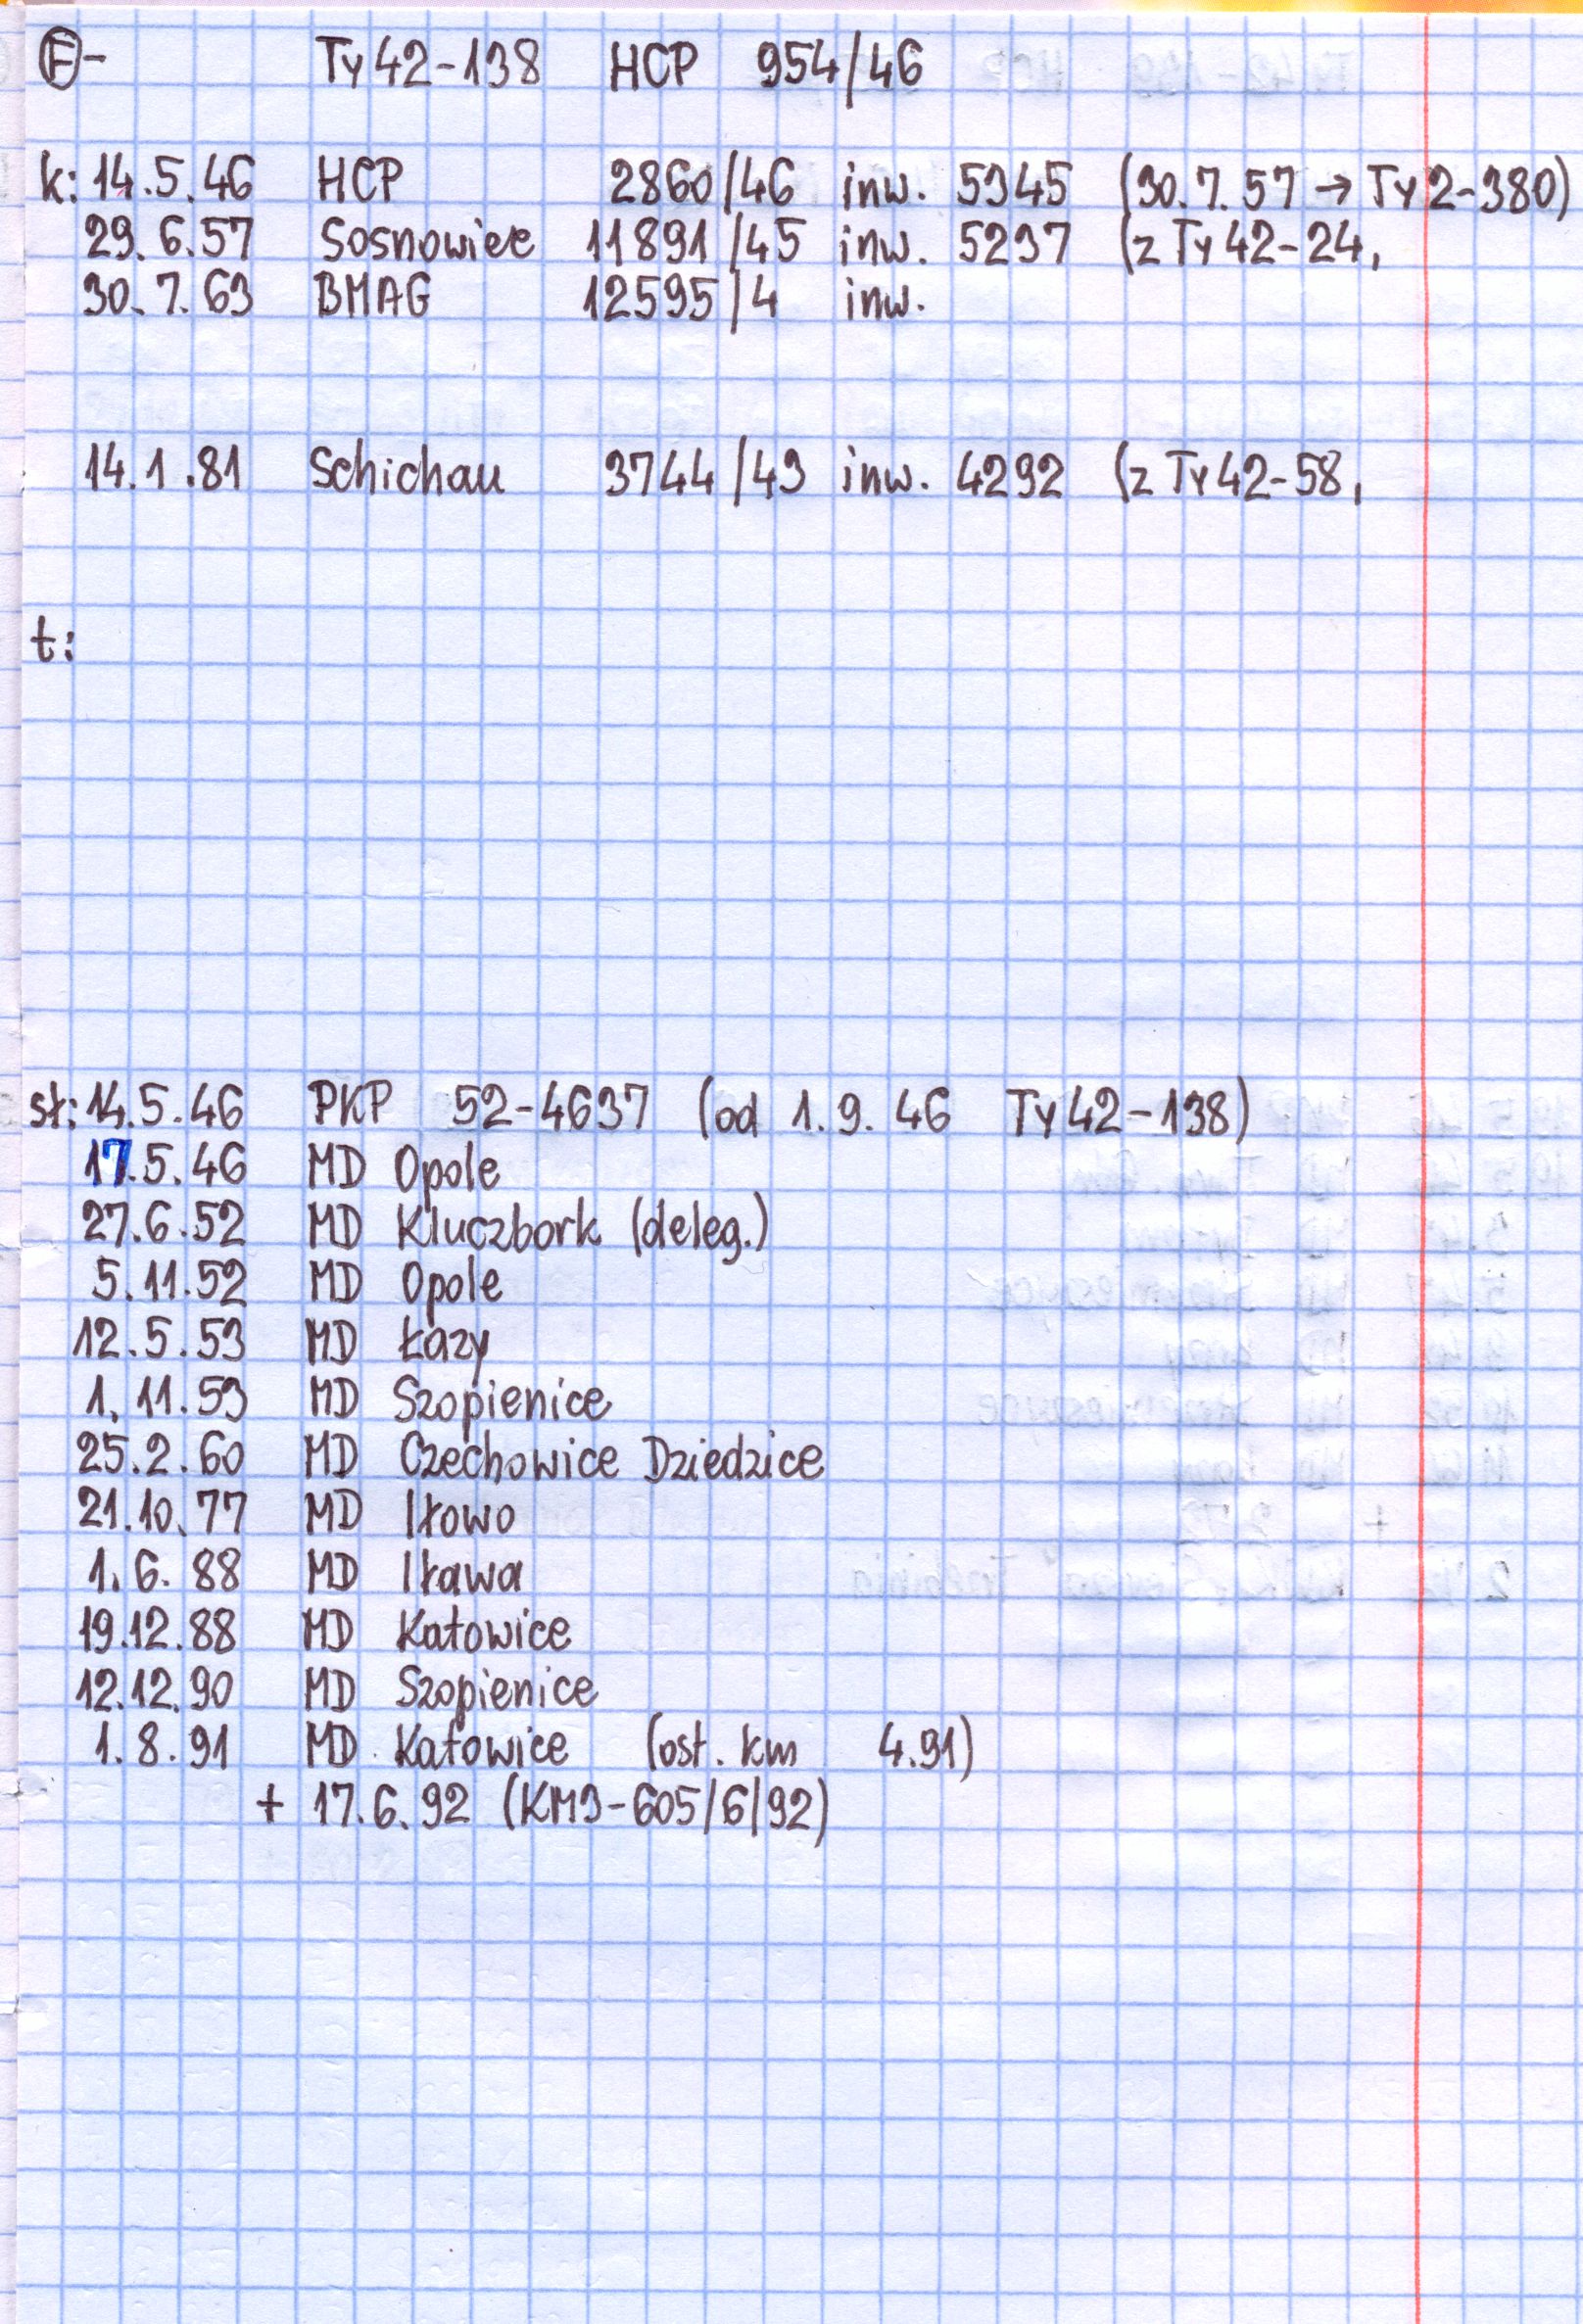 Ⓕ- Ty42-138 HCP 954/46
k: 14.5.46 HCP 2860/46 inw. 5345 (30.7.57 → Ty2-380)
29.6.57 Sosnowiec 11891/45 inw. 5237 (z Ty42-24,
30.7.63 BMAG 12595/4 inw.
14.1.81 Schichau 3744/43 inw. 4292 (z Ty42-58,
t:
st: 14.5.46 PKP 52-4637 (od 1.9.46 Ty42-138)
17.5.46 MD Opole
27.6.52 MD Kluczbork (deleg.)
5.11.52 MD Opole
12.5.53 MD Łazy
1.11.53 MD Szopienice
25.2.60 MD Czechowice Dziedzice
21.10.77 MD Iłowo
1.6.88 MD Iława
19.12.88 MD Katowice
12.12.90 MD Szopienice
1.8.91 MD Katowice (ost. km 4.91)
+ 17.6.92 (KM3-605/6/92)